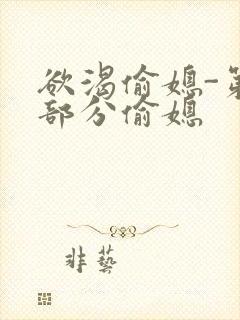 欲渴偷媳-第
部分偷媳
非藝